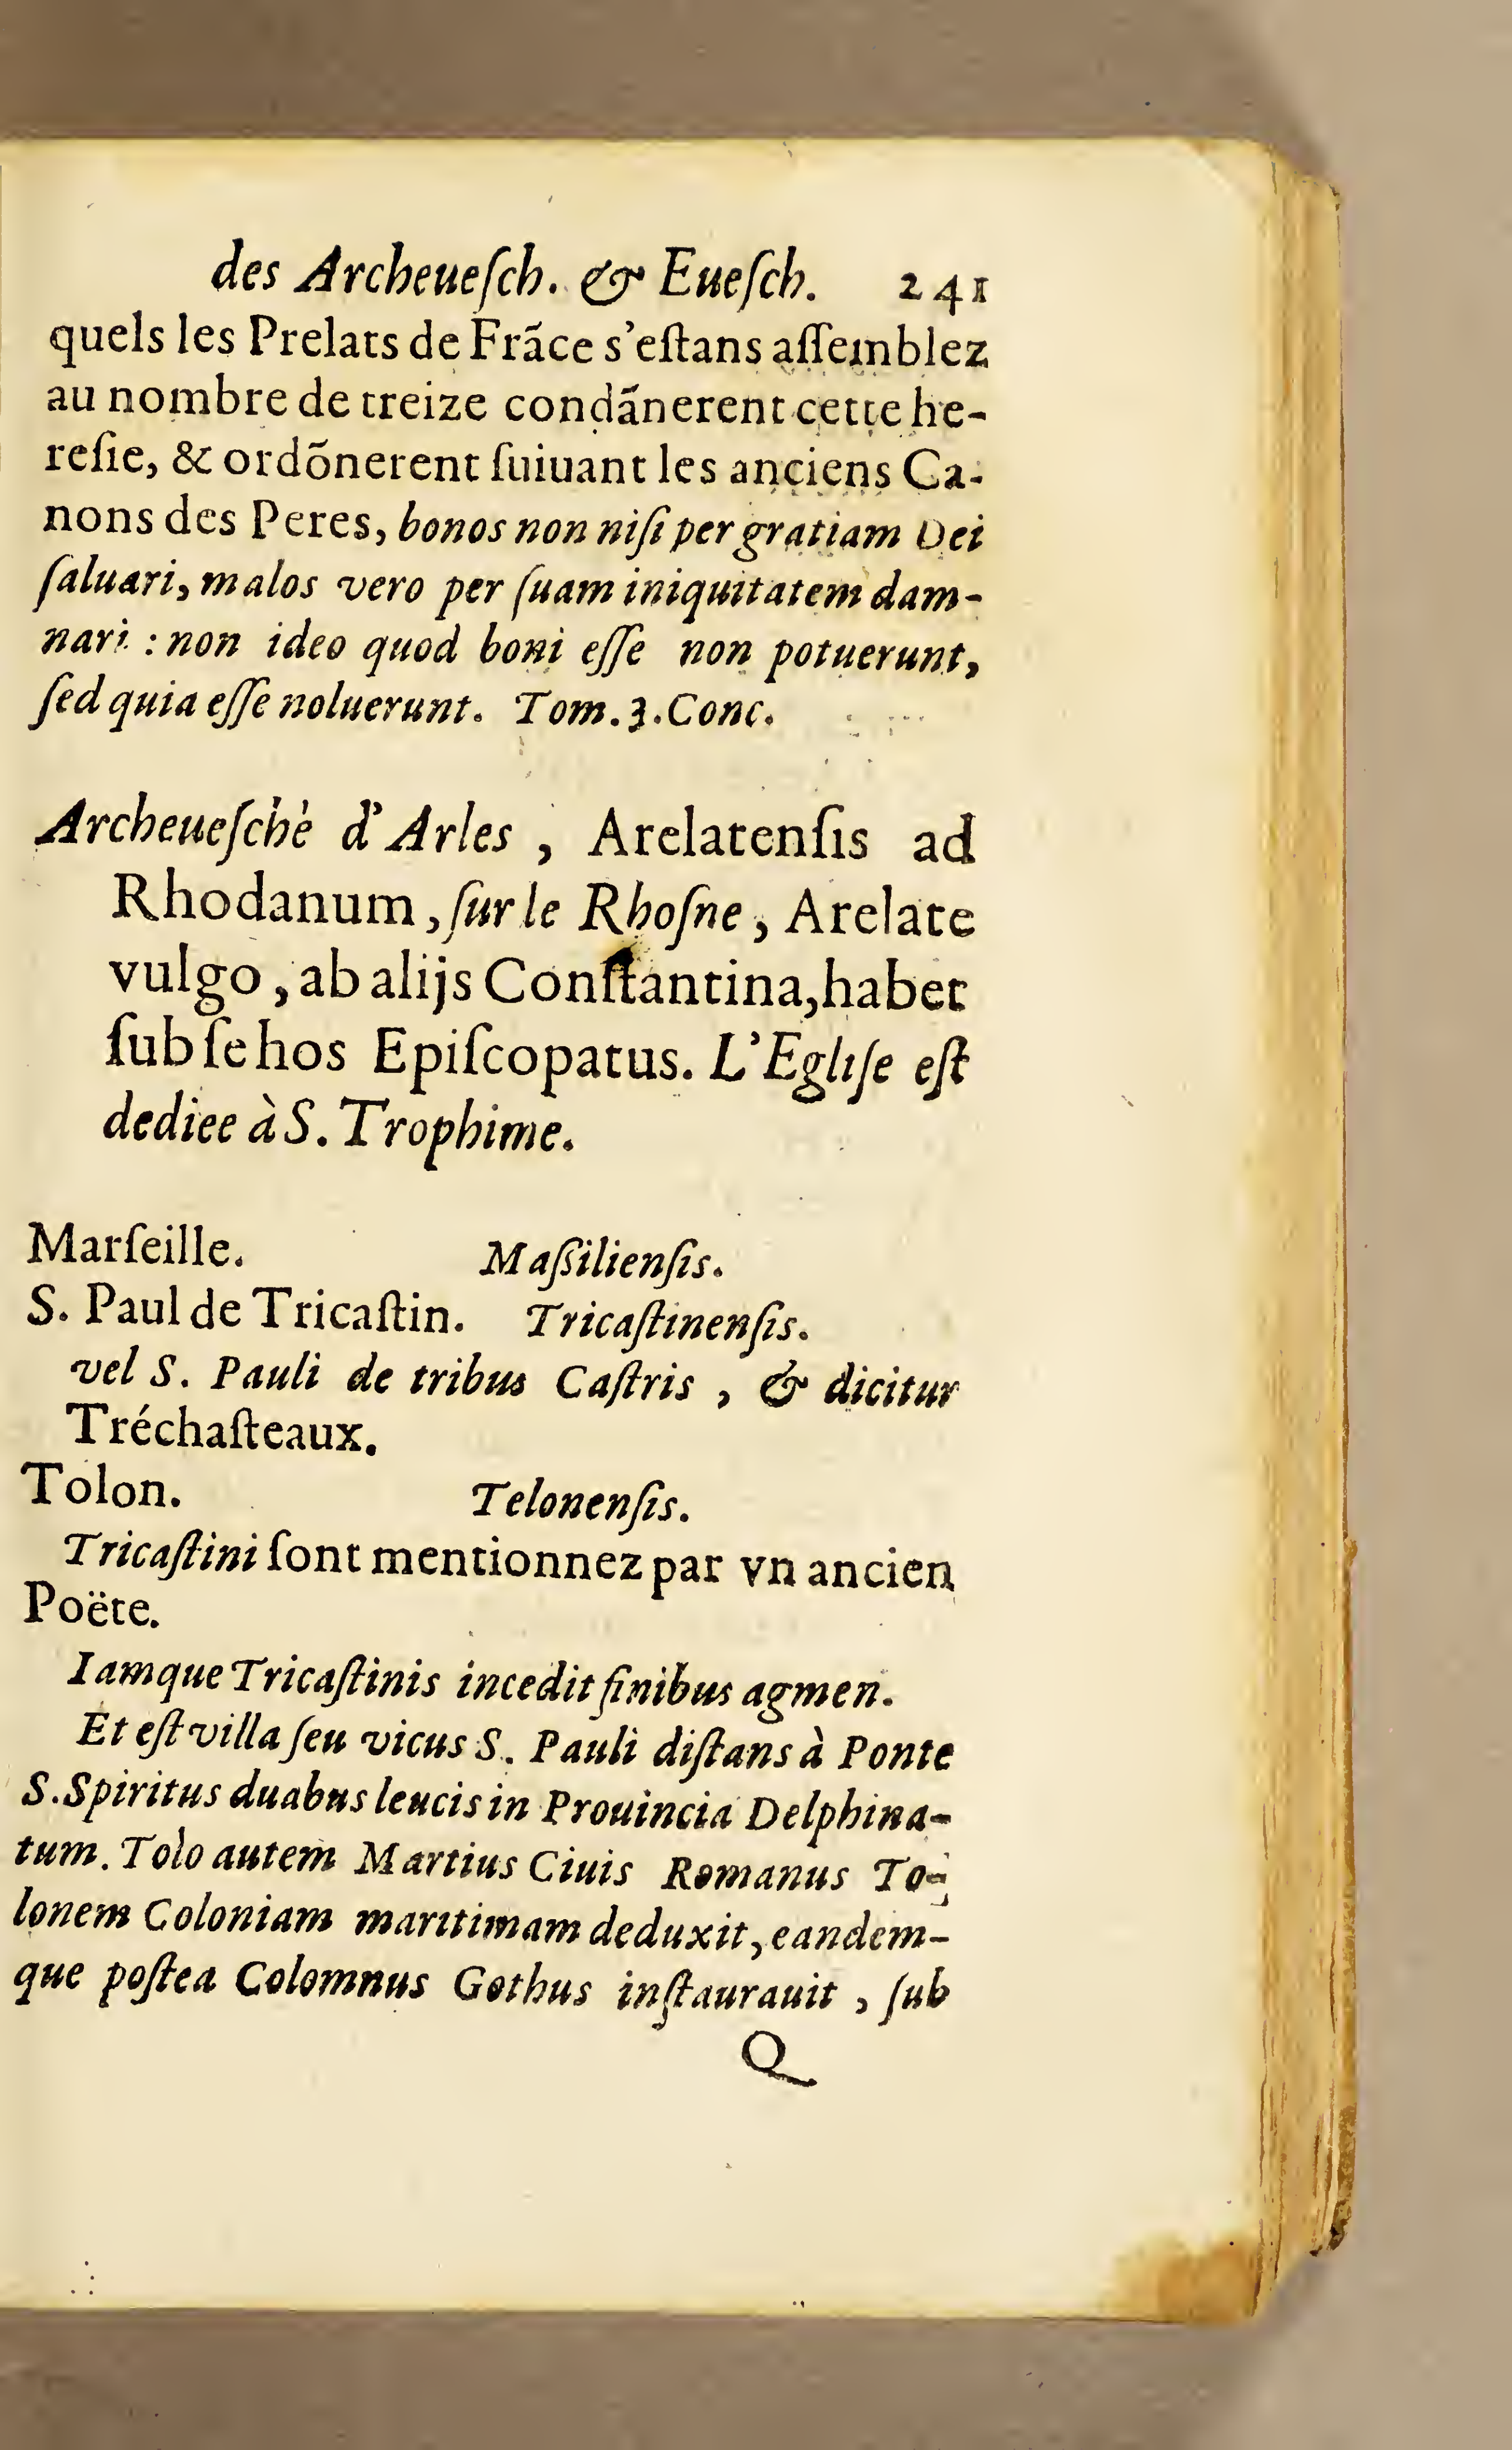 des Archeueſch. & Eueſch. 241
quels les Prelats de Frãce s'eſtans aſſemblez
au nombre de treize condãnerent cette he-
reſie, & ordõnerent ſuiuant les anciens Ca-
nons des Peres, bonos non niſi per gratiam Dei
ſaluari, malos vero per ſuam iniquitatem dam-
nari : non ideo quod boni eſſe non potuerunt,
ſed quia eſſe noluerunt. Tom. 3. Conc.
Archeueſchè d'Arles, Arelatenſis ad
Rhodanum, ſur le Rhoſne, Arelate
vulgo, ab alijs Conſtantina, habet
ſub ſe hos Epiſcopatus. L'Egliſe eſt
dediee à S. Trophime.
Marſeille. Maſſilienſis.
S. Paul de Tricaſtin. Tricaſtinenſis.
vel S. Pauli de tribus Caſtris, & dicitur
Tréchaſteaux.
Tolon. Telonenſis.
Tricaſtini ſont mentionnez par vn ancien
Poëte.
Iamque Tricaſtinis incedit finibus agmen.
Et eſt villa ſeu vicus S. Pauli diſtans à Ponte
S. Spiritus duabus leucis in Prouincia Delphina-
tum. Tolo autem Martius Ciuis Romanus To-
lonem Coloniam maritimam deduxit, eandem-
que poſtea Colomnus Gothus inſtaurauit, ſub
Q